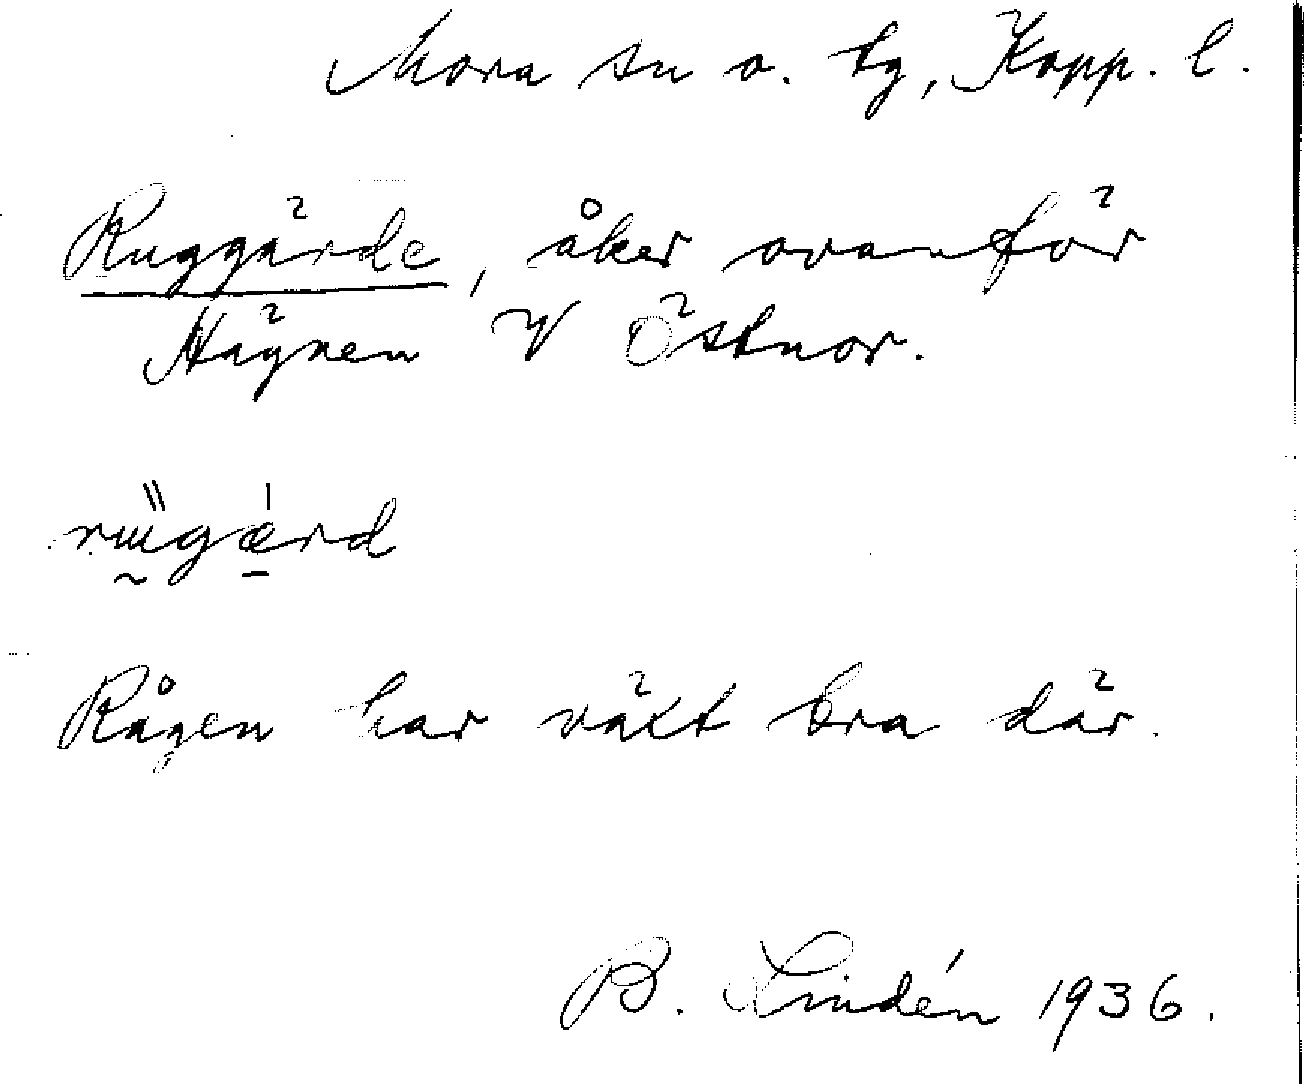 Mora sn o. tg, Kopp. l.
Ruggärde, åker ovanför
Hägnen V Östnor.
rɯ̈gærd
Rågen har växt bra där.
B. Lindén 1936.